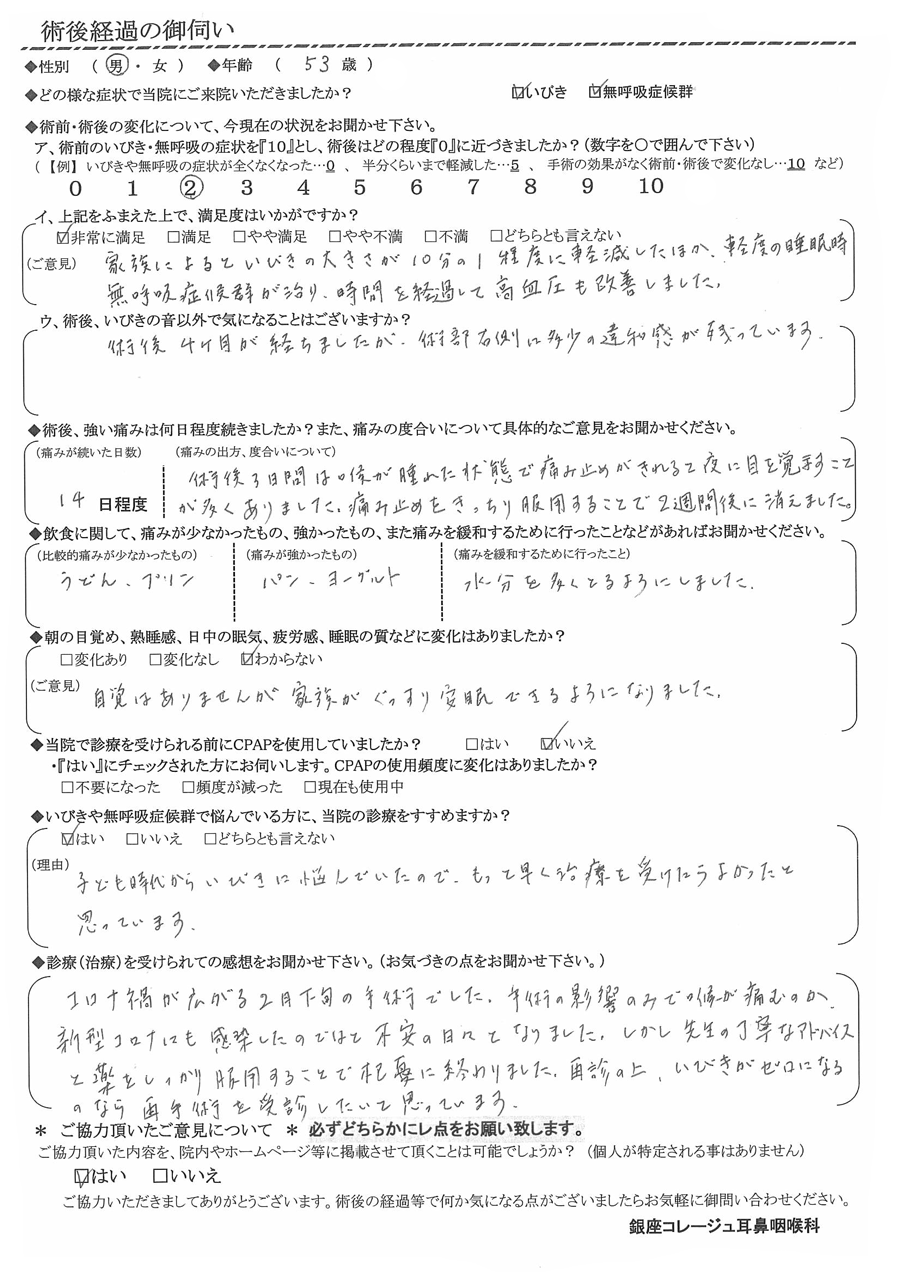 術後経過の御伺い
◆性別 （ 男 ・ 女 ） ◆年齢 （ 53 歳 ）
◆どの様な症状で当院にご来院いただきましたか？ ☑いびき ☑無呼吸症候群
◆術前・術後の変化について、今現在の状況をお聞かせ下さい。
ア、術前のいびき・無呼吸の症状を『10』とし、術後はどの程度『0』に近づきましたか？（数字を〇で囲んで下さい）
（【例】いびきや無呼吸の症状が全くなくなった…0 、 半分くらいまで軽減した…5 、 手術の効果がなく術前・術後で変化なし…10 など）
0 1 ② 3 4 5 6 7 8 9 10
イ、上記をふまえた上で、満足度はいかがですか？
☑非常に満足 □満足 □やや満足 □やや不満 □不満 □どちらとも言えない
（ご意見） 家族によるといびきの大きさが10分の1程度に軽減したほか、軽度の睡眠時
無呼吸症候群が治り、時間を経過して高血圧も改善しました。
ウ、術後、いびきの音以外で気になることはございますか？
術後4ヶ月が経ちましたが、術部右側に多少の違和感が残っています。
◆術後、強い痛みは何日程度続きましたか？また、痛みの度合いについて具体的なご意見をお聞かせください。
（痛みが続いた日数） （痛みの出方、度合いについて）
術後3日間は喉が腫れた状態で痛み止めがきれると夜に目を覚ますこと
14 日程度 が多くありました。痛み止めをきっちり服用することで2週間後に消えました。
◆飲食に関して、痛みが少なかったもの、強かったもの、また痛みを緩和するために行ったことなどがあればお聞かせください。
（比較的痛みが少なかったもの） （痛みが強かったもの） （痛みを緩和するために行ったこと）
うどん、プリン パン、ヨーグルト 水分を多くとるようにしました。
◆朝の目覚め、熟睡感、日中の眠気、疲労感、睡眠の質などに変化はありましたか？
□変化あり □変化なし ☑わからない
（ご意見） 自覚はありませんが家族がぐっすり安眠できるようになりました。
◆当院で診療を受けられる前にCPAPを使用していましたか？ □はい ☑いいえ
・『はい』にチェックされた方にお伺いします。CPAPの使用頻度に変化はありましたか？
□不要になった □頻度が減った □現在も使用中
◆いびきや無呼吸症候群で悩んでいる方に、当院の診療をすすめますか？
☑はい □いいえ □どちらとも言えない
（理由） 子ども時代からいびきに悩んでいたので、もっと早く治療を受けたらよかったと
思っています。
◆診療（治療）を受けられての感想をお聞かせ下さい。（お気づきの点をお聞かせ下さい。）
コロナ禍が広がる2月下旬の手術でした。手術の影響のみでの喉が痛むのか、
新型コロナにも感染したのではと不安の日々となりました。しかし先生の丁寧なアドバイス
と薬をしっかり服用することで杞憂に終わりました。再診の上、いびきがゼロになる
のなら再手術を受診したいと思っています。
＊ ご協力頂いたご意見について ＊ 必ずどちらかにレ点をお願い致します。
ご協力頂いた内容を、院内やホームページ等に掲載させて頂くことは可能でしょうか？（個人が特定される事はありません）
☑はい □いいえ
ご協力いただきましてありがとうございます。術後の経過等で何か気になる点がございましたらお気軽に御問い合わせください。
銀座コレージュ耳鼻咽喉科